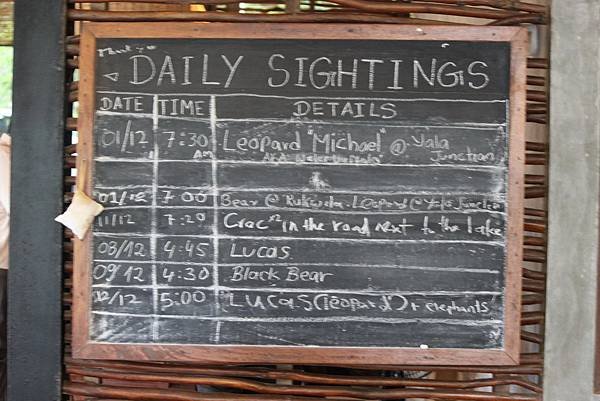 Thank you
DAILY SIGHTINGS
DATE TIME DETAILS
01/12 7:30 AM Leopard "Michael" @ Yala Junction
AKA
7:00 Bear @ Leopard @ Yala Junction
11/12 7:20 Croc x2 in the road next to the lake
08/12 4:45 Lucas
09/12 4:30 Black Bear
02/12 5:00 LUCAS (leopard) + elephants